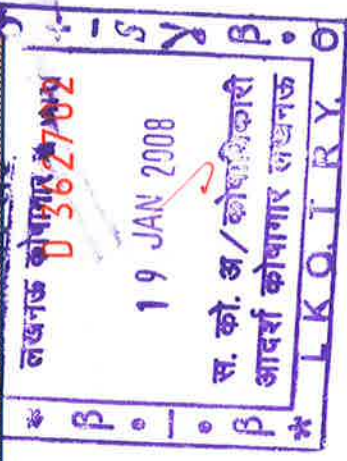 लखनऊ कोषागार
D 362702
19 JAN 2008
स. को. अ/कोषाधिकारी
आदर्श कोषागार लखनऊ
* L K O. T R Y.
* β • – • β
+ – S γ β • O